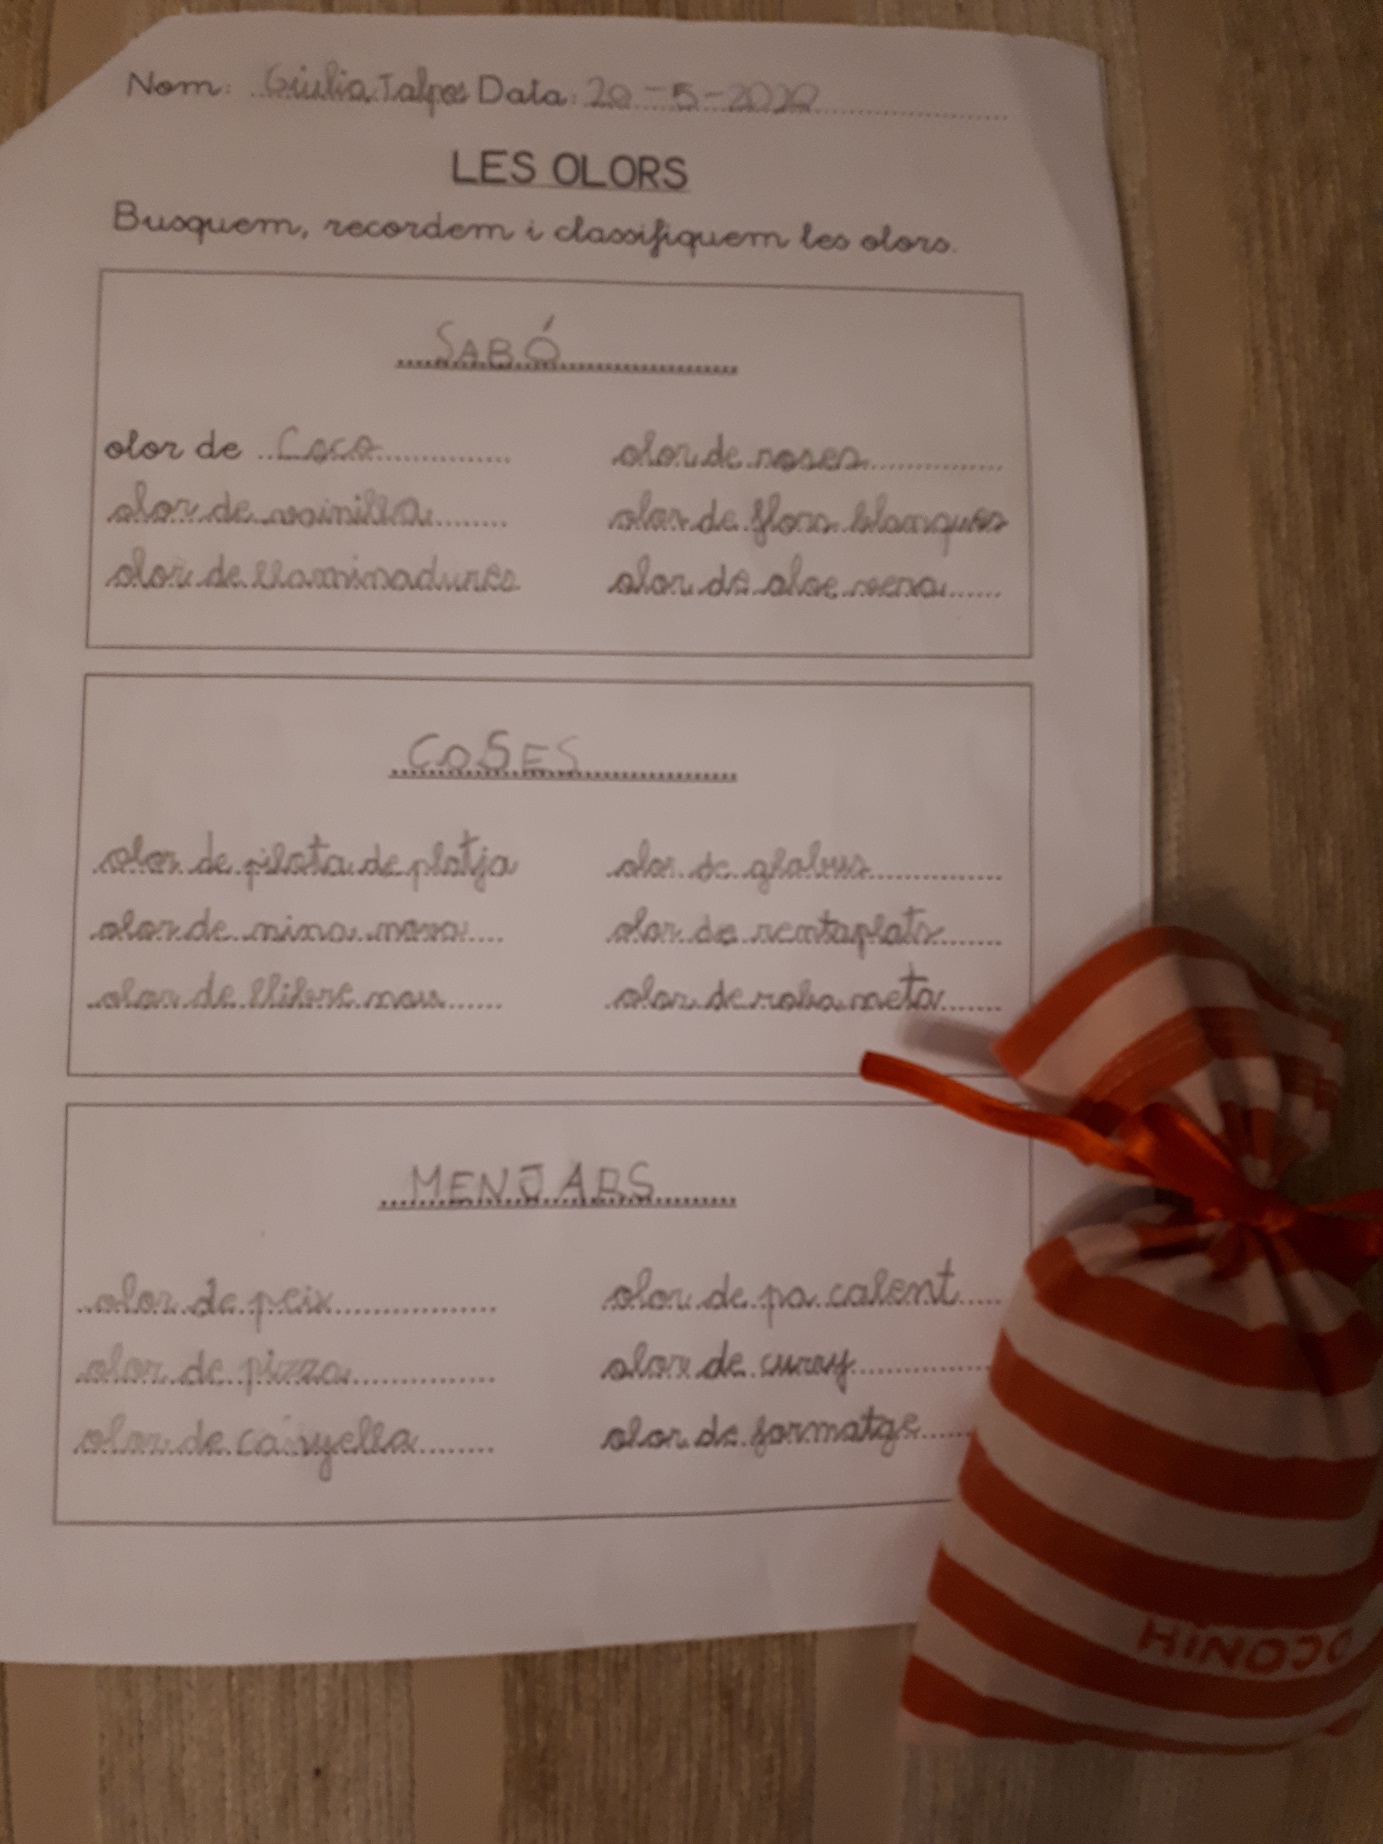 Nom: Giulia Talpos Data: 20-5-2020
LES OLORS
Busquem, recordem i classifiquem les olors.
SABÓ
olor de Coco olor de roses
olor de vainilla olor de flors blanques
olor de llaminadures olor de aloe vera
COSES
olor de pilota de platja olor de globus
olor de nina nova olor de rentaplats
olor de llibre nou olor de roba neta
MENJARS
olor de peix olor de pa calent
olor de pizza olor de curry
olor de canyella olor de formatge
HINOJO